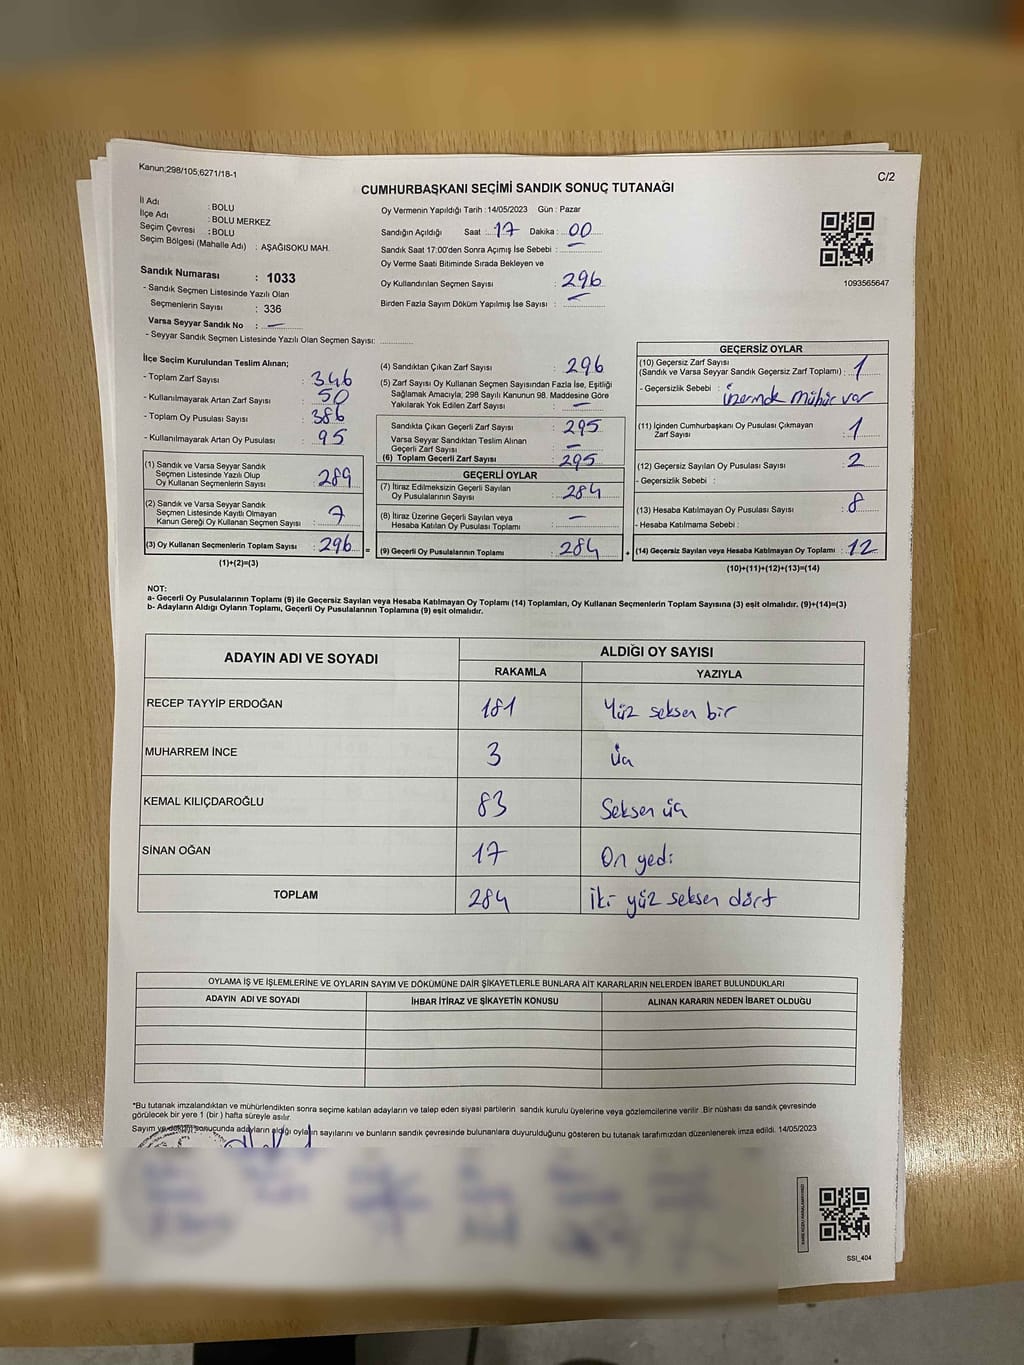 Kanun;298/105,6271/18-1
C/2
CUMHURBAŞKANI SEÇİMİ SANDIK SONUÇ TUTANAĞI
İl Adı : BOLU
İlçe Adı : BOLU MERKEZ
Seçim Çevresi : BOLU
Seçim Bölgesi (Mahalle Adı) : AŞAĞISOKU MAH.
Oy Vermenin Yapıldığı Tarih :14/05/2023 Gün : Pazar
Sandığın Açıldığı Saat : 17 Dakika : 00
Sandık Saat 17:00'den Sonra Açımış İse Sebebi : –
Oy Verme Saati Bitiminde Sırada Bekleyen ve
Oy Kullandırılan Seçmen Sayısı : 296
Birden Fazla Sayım Döküm Yapılmış İse Sayısı : –
1093565647
Sandık Numarası : 1033
- Sandık Seçmen Listesinde Yazılı Olan
Seçmenlerin Sayısı : 336
Varsa Seyyar Sandık No : –
- Seyyar Sandık Seçmen Listesinde Yazılı Olan Seçmen Sayısı:
İlçe Seçim Kurulundan Teslim Alınan;
- Toplam Zarf Sayısı : 346
- Kullanılmayarak Artan Zarf Sayısı : 50
- Toplam Oy Pusulası Sayısı : 386
- Kullanılmayarak Artan Oy Pusulası : 95
(1) Sandık ve Varsa Seyyar Sandık
Seçmen Listesinde Yazılı Olup
Oy Kullanan Seçmenlerin Sayısı : 289
(2) Sandık ve Varsa Seyyar Sandık
Seçmen Listesinde Kayıtlı Olmayan
Kanun Gereği Oy Kullanan Seçmen Sayısı : 7
(3) Oy Kullanan Seçmenlerin Toplam Sayısı : 296 =
(1)+(2)=(3)
(4) Sandıktan Çıkan Zarf Sayısı : 296
(5) Zarf Sayısı Oy Kullanan Seçmen Sayısından Fazla İse, Eşitliği
Sağlamak Amacıyla; 298 Sayılı Kanunun 98. Maddesine Göre
Yakılarak Yok Edilen Zarf Sayısı : –
Sandıkta Çıkan Geçerli Zarf Sayısı : 295
Varsa Seyyar Sandıktan Teslim Alınan
Geçerli Zarf Sayısı : –
(6) Toplam Geçerli Zarf Sayısı : 295
GEÇERLİ OYLAR
(7) İtiraz Edilmeksizin Geçerli Sayılan
Oy Pusulalarının Sayısı : 284
(8) İtiraz Üzerine Geçerli Sayılan veya
Hesaba Katılan Oy Pusulası Toplamı : –
(9) Geçerli Oy Pusulalarının Toplamı : 284 +
GEÇERSİZ OYLAR
(10) Geçersiz Zarf Sayısı
(Sandık ve Varsa Seyyar Sandık Geçersiz Zarf Toplamı) : 1
- Geçersizlik Sebebi : üzerinde mühür var
(11) İçinden Cumhurbaşkanı Oy Pusulası Çıkmayan
Zarf Sayısı : 1
(12) Geçersiz Sayılan Oy Pusulası Sayısı : 2
- Geçersizlik Sebebi :
(13) Hesaba Katılmayan Oy Pusulası Sayısı : 8
- Hesaba Katılmama Sebebi :
(14) Geçersiz Sayılan veya Hesaba Katılmayan Oy Toplamı : 12
(10)+(11)+(12)+(13)=(14)
NOT:
a- Geçerli Oy Pusulalarının Toplamı (9) ile Geçersiz Sayılan veya Hesaba Katılmayan Oy Toplamı (14) Toplamları, Oy Kullanan Seçmenlerin Toplam Sayısına (3) eşit olmalıdır. (9)+(14)=(3)
b- Adayların Aldığı Oyların Toplamı, Geçerli Oy Pusulalarının Toplamına (9) eşit olmalıdır.
ADAYIN ADI VE SOYADI
ALDIĞI OY SAYISI
RAKAMLA YAZIYLA
RECEP TAYYİP ERDOĞAN 181 Yüz seksen bir
MUHARREM İNCE 3 Üç
KEMAL KILIÇDAROĞLU 83 Seksen üç
SİNAN OĞAN 17 On yedi
TOPLAM 284 iki yüz seksen dört
OYLAMA İŞ VE İŞLEMLERİNE VE OYLARIN SAYIM VE DÖKÜMÜNE DAİR ŞİKAYETLERLE BUNLARA AİT KARARLARIN NELERDEN İBARET BULUNDUKLARI
ADAYIN ADI VE SOYADI İHBAR İTİRAZ VE ŞİKAYETİN KONUSU ALINAN KARARIN NEDEN İBARET OLDUĞU
*Bu tutanak imzalandıktan ve mühürlendikten sonra seçime katılan adayların ve talep eden siyasi partilerin sandık kurulu üyelerine veya gözlemcilerine verilir .Bir nüshası da sandık çevresinde
görülecek bir yere 1 (bir ) hafta süreyle asılır.
Sayım ve döküm sonuçunda adayların aldığı oyların sayılarını ve bunların sandık çevresinde bulunanlara duyurulduğunu gösteren bu tutanak tarafımızdan düzenlenerek imza edildi. 14/05/2023
SSI_404